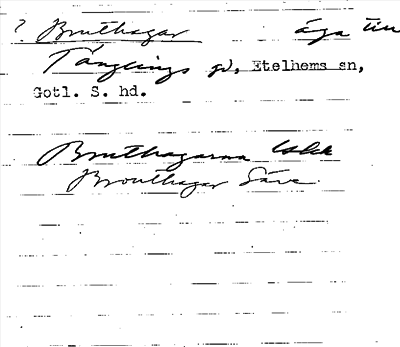 ? Bruthagar äga till
Tänglings gd, Etelhems sn,
Gotl. S. hd.
Bruthagarna
Brouthagar Säve